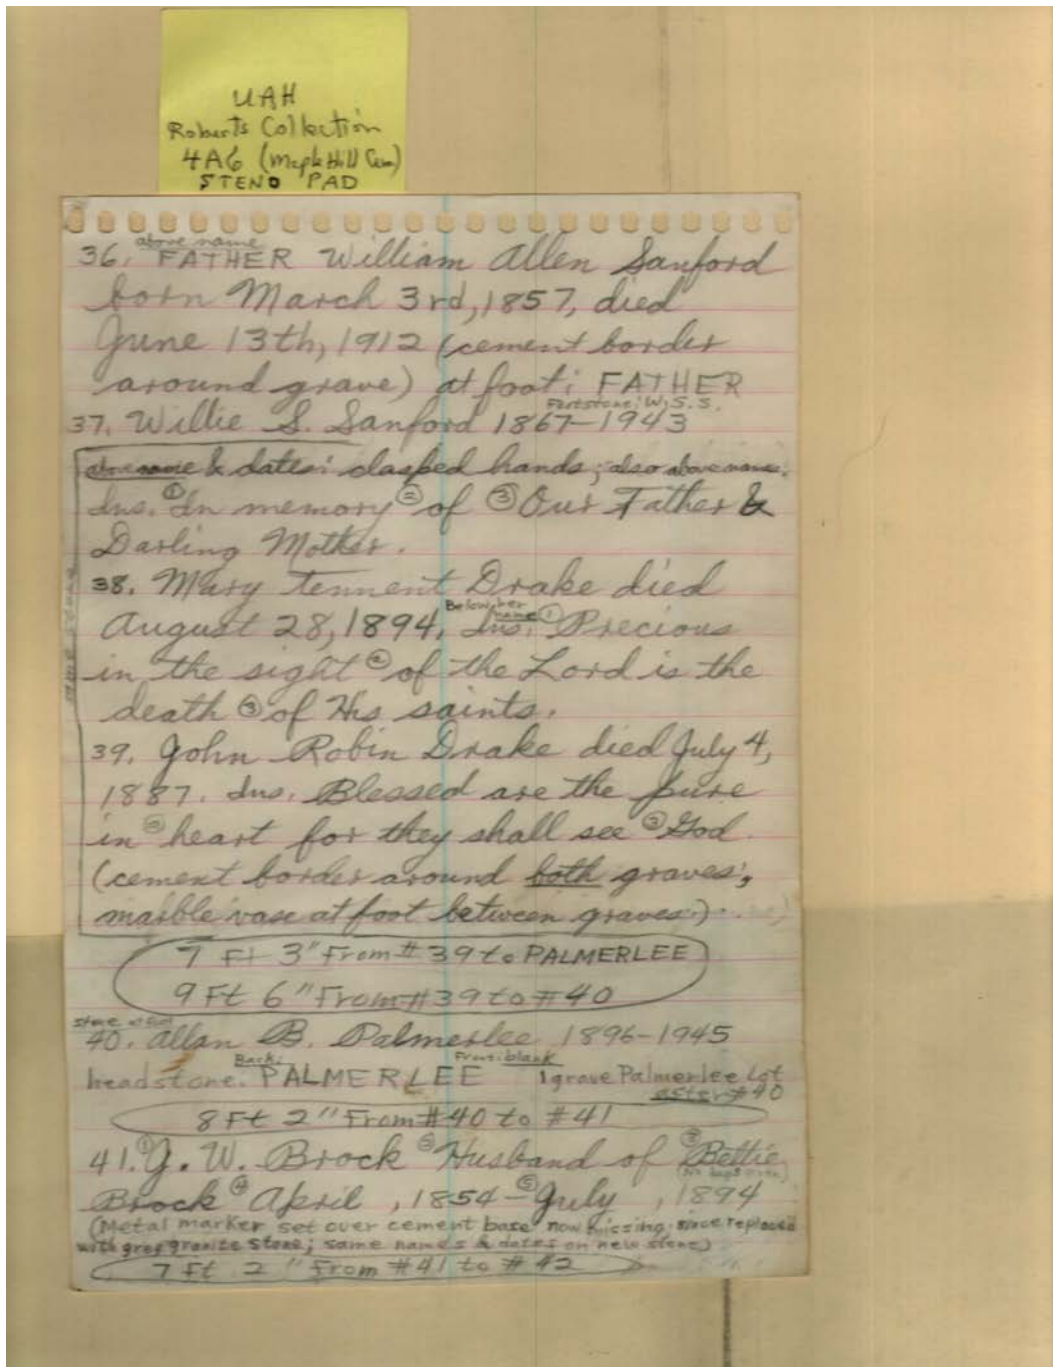 UAH
Roberts Collection
4A6 (Maple Hill Cem)
STENO PAD
above name
36. FATHER William Allen Sanford
born March 3rd, 1857, died
June 13th, 1912 (cement border
around grave) at foot: FATHER
Footstone: W. S. S.
37. Willie S. Sanford 1867-1943
above name & dates: clasped hands; also above name:
Ins. ① In memory ② of ③ Our Father &
Darling Mother.
38. Mary Tennent Drake died
Below her name
August 28, 1894. Ins: ① Precious
in the sight ② of the Lord is the
death ③ of His saints.
39. John Robin Drake died July 4,
1887. Ins. Blessed are the pure
in ② heart for they shall see ③ God.
(cement border around both graves;
marble vase at foot between graves.)
7 Ft 3" From #39 to PALMERLEE
9 Ft 6" From #39 to #40
stone at foot
40. Allan B. Palmerlee 1896-1945
Back: Front: blank
headstone. PALMERLEE 1 grave Palmerlee Lot
after #40
8 Ft 2" From #40 to #41
41. ① J. W. Brock ② Husband of ③ Bettie
(No days given)
Brock ④ April , 1854 - ⑤ July , 1894
(Metal marker set over cement base now missing; since replaced
with grey granite stone; same names & dates on new stone)
7 Ft 2" From #41 to #42